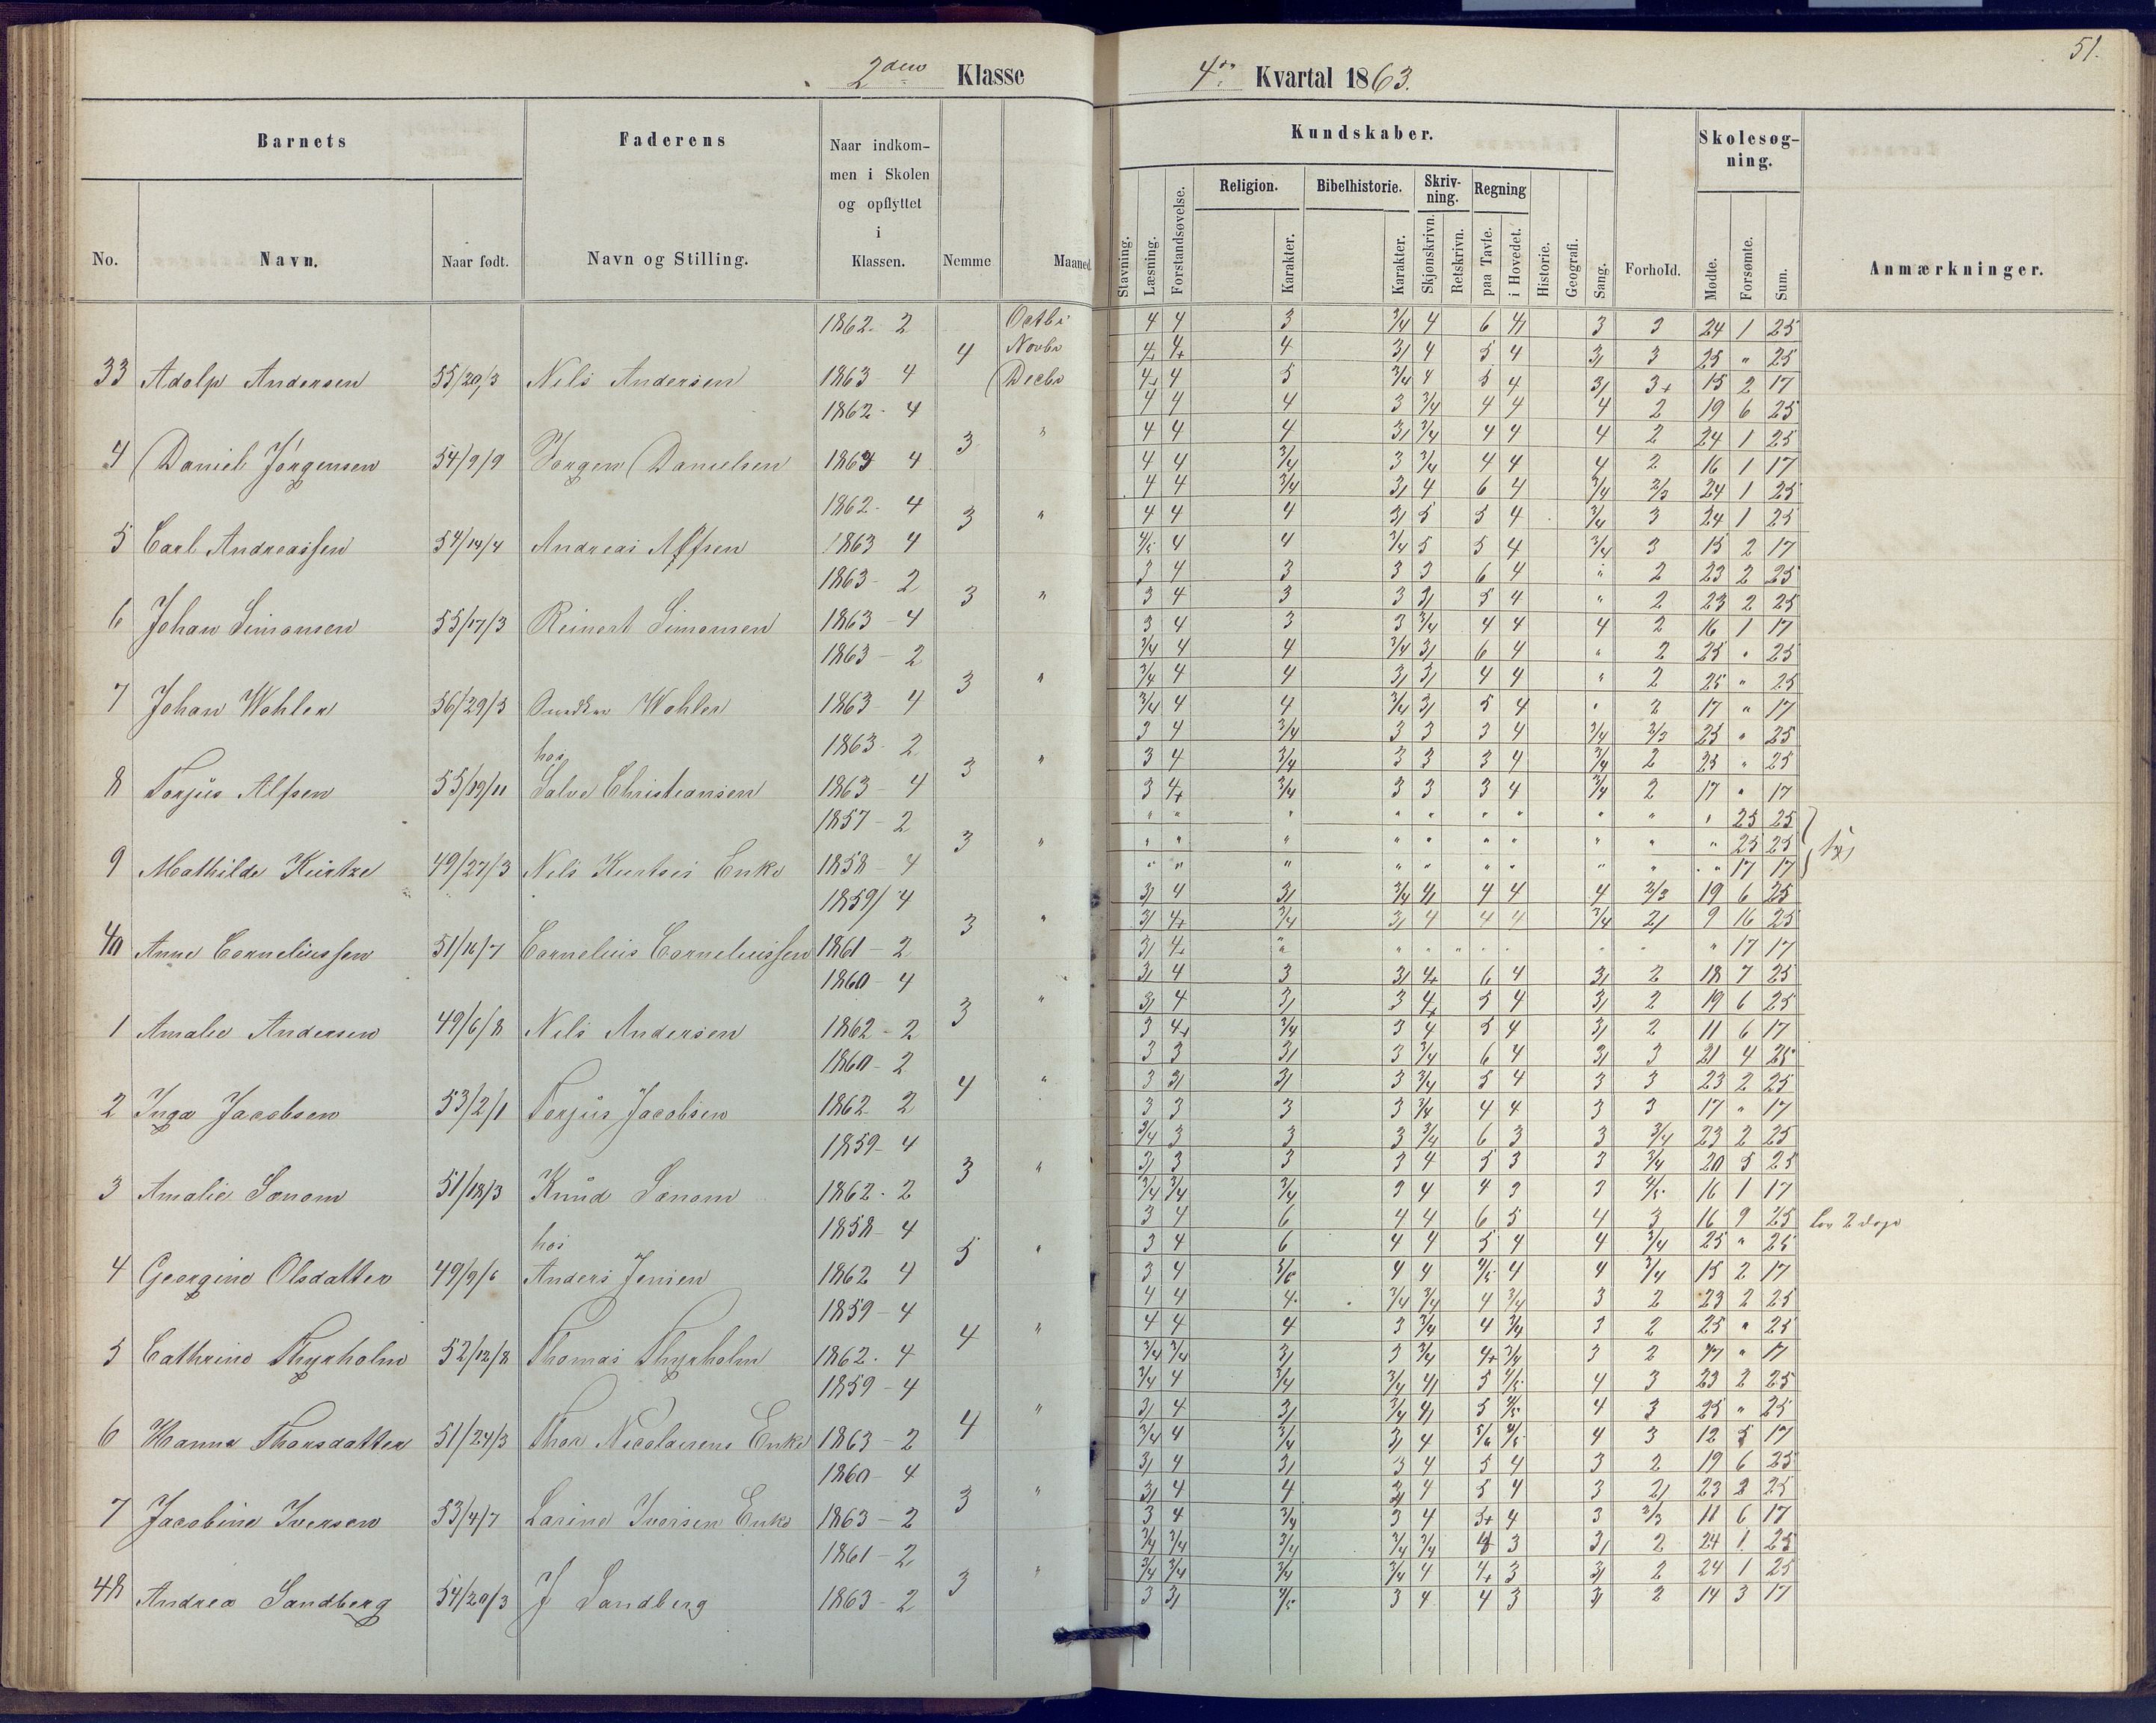 51.
2den Klasse
4de Kvartal 1863.
Barnets
Faderens
Naar indkom-
men i Skolen
og opflyttet
i
Klassen.
No.
Navn.
Naar født.
Navn og Stilling.
Nemme
Maaned
Kundskaber.
Stavning.
Læsning.
Forstandsøvelse.
Religion.
Karakter.
Bibelhistorie.
Karakter.
Skriv-
ning.
Skjønskrivn.
Retskrivn.
Regning
paa Tavle.
i Hovedet.
Historie.
Geografi.
Sang.
Forhold.
Skolesøg-
ning.
Mødte.
Forsømte.
Sum.
Anmærkninger.
1862. 2 Octbr 4 4 3 3/4 4 6 3 3 24 1 25
4 Novbr 4 3/ 4 5 4 3/ 3 25 " 25
33 Adolp Andersen 55/20/3 Nils Andersen 1863 4 Decbr 4 5 3/4 4 5 4 3/ 3+ 15 2 17
1862. 4 4 4 4 3 3/4 4 4 4 2 19 6 25
3 " 4 4 4 3/ 3/4 4 4 4 2 24 1 25
4 Daniel Jørgensen 54/9/9 Jørgen Danielsen 1863 4 4 4 3/4 3 3/4 4 4 4 2 16 1 17
1862. 4 4 4 3/4 3/ 4 6 4 3/4 2/3 24 1 25
3 " 4 4 4 3/ 5 5 4 3/4 3 24 1 25
5 Carl Andreassen 54/14/4 Andreas 1863 4 4/5 4 4 3/4 5 5 4 3/4 3 15 2 17
1863 - 2 3 4 3 3 3 6 4 " 2 23 2 25
3 " 3 4 3 3 3/ 5 4 " 2 23 2 25
6 Johan Simonsen 55/17/3 Reinert Simonsen 1863 - 4 3 4 3 3 3/4 4 4 4 2 16 1 17
1863 - 2 3/4 4 4 3/4 3/ 6 4 " 2 25 " 25
3 " 3/4 4 4 3/ 3/ 4 4 " 2 25 " 25
7 Johan Wohler 56/29/5 Wohler 1863 4 3/4 4 4 3/4 3/ 5 4 " 2 17 " 17
hos 1863. 2 3 4 3/4 3 3 3 4 3/4 2/3 25 " 25
3 " 3 4 3/4 3 3 3 4 3/4 2 25 " 25
8 Torjus Alfsen 55/19/11 Salve Christiansen 1863 - 4 3 4+ 3/4 3 3 3 4 3/4 2 17 " 17
1857 - 2 " " " " " " " " " " 25 25
3 " " " " " " " " " " " 25 25
9 Mathilde Kurtze 49/27/3 Nils Kurtses Enke 1858 - 4 " " " " " " " " " " 17 17
1859/ 4 3/ 4 3/ 3/4 4/ 4 4 4 2/3 19 6 25
3 " 3/ 4+ 3/4 3/ 4 4 4 3/4 2/ 9 16 25
40 Anne Corneliussen 51/16/7 Cornelius Corneliussen 1861 - 2 3/ 4+ " " " " " " " 17 17
1860 - 4 3/ 4 3 3/ 4+ 6 4 3/ 2 18 7 25
3 " 3/ 4 3/ 3 4+ 5 4 3/ 2 19 6 25
1 Amalie Andersen 49/6/8 Nils Andersen 1862 - 2 3 3/4 3 4 5 4 3/ 2 11 6 17
1860 - 2 3 3 3/ 3 3/4 6 4 3/ 3 21 4 25
4 " 3 3/ 3/ 3 3/4 5 4 3 3 23 2 25
2 Inga Jacobsen 53/2/1 Torjus Jacobsen 1862. 2 3 3 3 3 3/4 4 4 3 3 17 " 17
1859 - 4 3/4 3 3 3 3/4 6 3 3 3/4 23 2 25
3 " 3/ 3 3 3 4 5 3 3 3/4 20 5 25
3 Amalie Sønom 51/18/3 Knud Sønom 1862. 2 3/4 3/4 3/4 3 4 4 3 3 4/5 16 1 17
hos 1858 - 4 3 4 6 4 4 6 5 4 3 16 9 25 2 dage
5 " 3 4 6 4 4 5 4 4 3/4 25 " 25
4 Georgine Olsdatter 49/9/6 Anders Jensen 1862 4 3 4 5/6 4 4 4/5 4 4 3/4 15 2 17
1859 - 4 4 4 4 3/4 3/4 4 3/4 3 2 23 2 25
4 " 4 4 4 3 3/4 4 3/4 3 2 25 " 25
5 Cathrine Thyrholm 52/12/8 Thomas Thyrholm 1862. 4 3/4 3/4 3/ 3 3/4 4+ 3/4 3 2 17 " 17
1859 - 4 3/4 4 3/4 3/4 4/ 5 4/5 4 3 23 2 25
4 " 3/ 4 3/ 3/4 4/ 5 4/5 4 3 25 " 25
6 Hanna Thorsdatter 51/24/3 Thor Nicolaisens Enke 1863 - 2 3/4 4 3/4 3/ 4 5/6 4/5 4 3 12 5 17
1860 - 4 3/ 4 3/ 3 4 5 4 3 2 19 6 25
3 " 3/ 4 4 3/ 4 5 4 3 2/ 23 2 25
7 Jacobine Iversen 53/4/7 Larine Iversen Enke 1863 - 2 3 4 3/4 3 4 5+ 4 3 2/3 11 6 17
1861 - 2 3/4 3/4 3/4 3/4 3/4 4 3 3/ 2 24 1 25
3 " 3/4 3/4 3/4 3/4 4 4+ 3 3/ 2 24 1 25
48 Andrea Sandberg 54/20/3 J Sandberg 1863 - 2 3 3/ 4/5 3 4 4 3 3/ 2 14 3 17